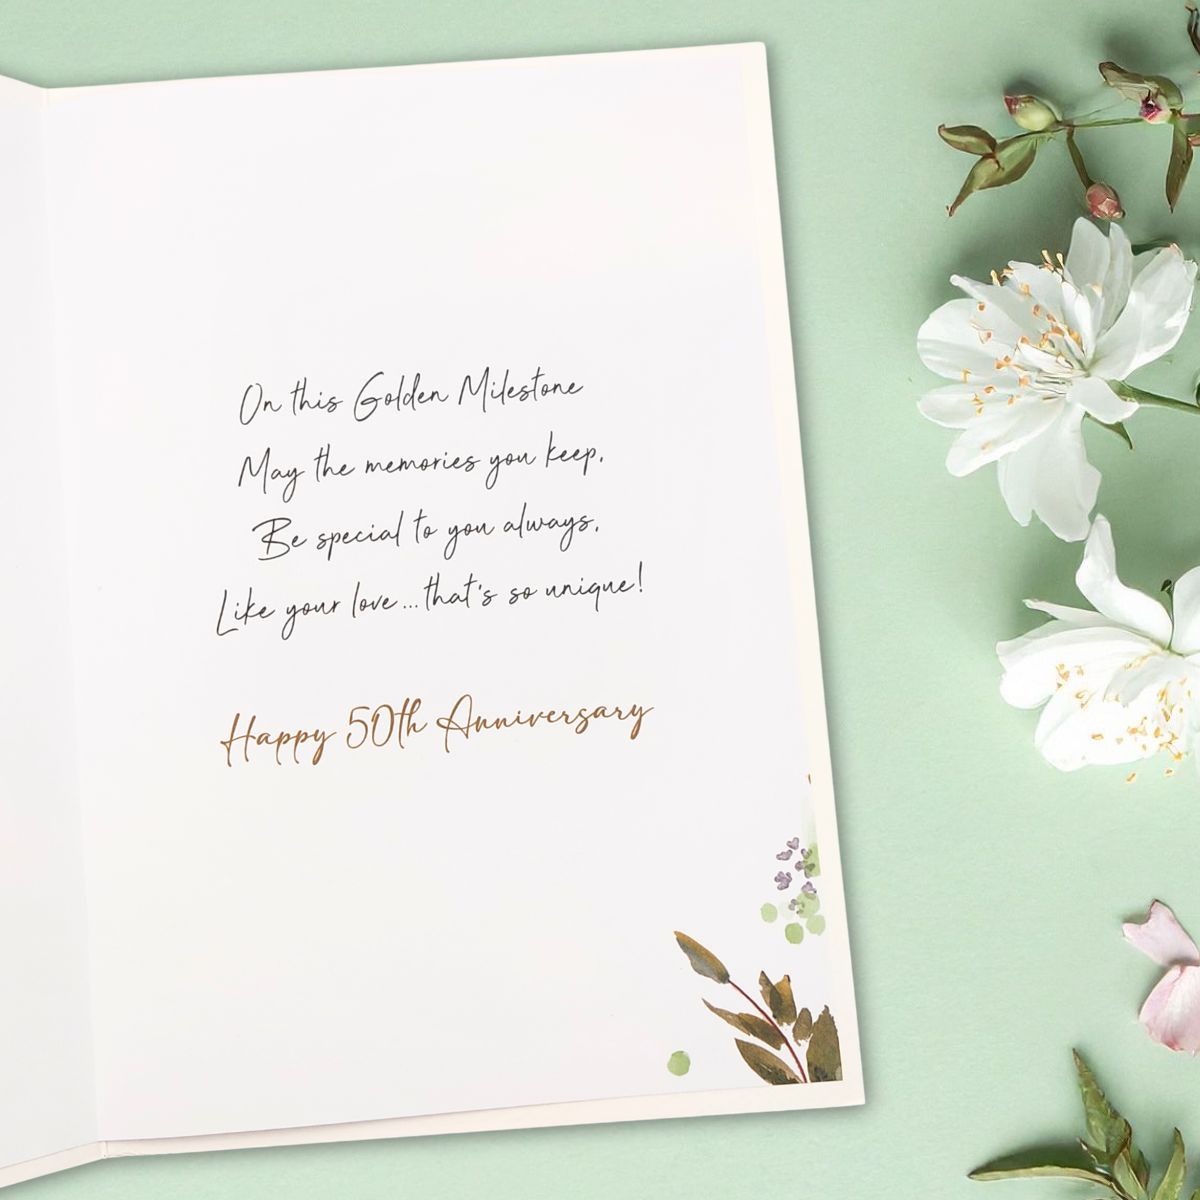 On this Golden Milestone
May the memories you keep,
Be special to you always,
Like your love...that's so unique!
Happy 50th Anniversary